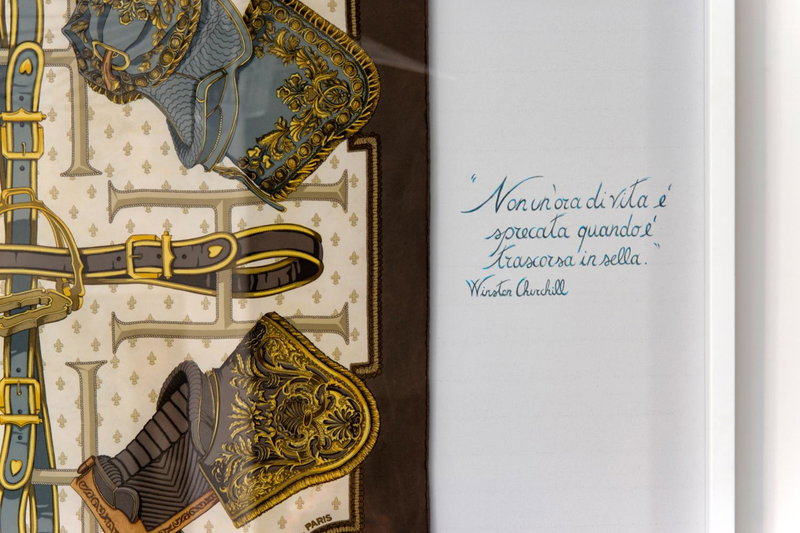 "Non un'ora di vita é
sprecata quando é
trascorsa in sella."
Winston Churchill
PARIS